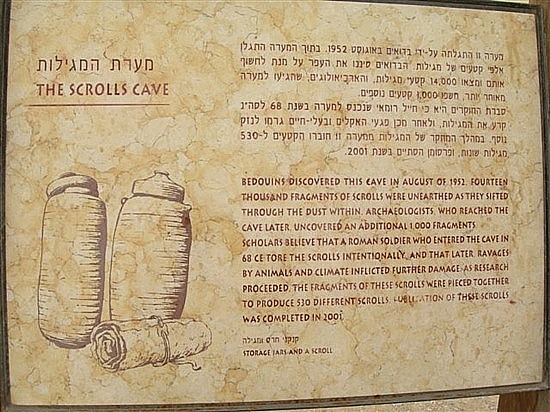 מערת המגילות
THE SCROLLS CAVE
מערה זו התגלתה על-ידי בדואים באוגוסט 1952. בתוך המערה התגלו
אלפי קטעים של מגילות. הבדואים סיננו את העפר על מנת לחשוף
אותם ומצאו 14,000 קטעי מגילות, והארכיאולוגים, שהגיעו למערה
מאוחר יותר, חשפו 1,000 קטעים נוספים.
סברת החוקרים היא כי חייל רומאי שנכנס למערה בשנת 68 לסה״נ
קרע את המגילות, ולאחר מכן פגעי האקלים ובעלי-חיים גרמו לנזק
נוסף. במהלך המחקר של המגילות ממערה זו חוברו הקטעים ל-530
מגילות שונות, ופרסומן הסתיים בשנת 2001.
BEDOUINS DISCOVERED THIS CAVE IN AUGUST OF 1952. FOURTEEN
THOUSAND FRAGMENTS OF SCROLLS WERE UNEARTHED AS THEY SIFTED
THROUGH THE DUST WITHIN. ARCHAEOLOGISTS, WHO REACHED THE
CAVE LATER, UNCOVERED AN ADDITIONAL 1,000 FRAGMENTS.
SCHOLARS BELIEVE THAT A ROMAN SOLDIER WHO ENTERED THE CAVE IN
68 CE TORE THE SCROLLS INTENTIONALLY, AND THAT LATER, RAVAGES
BY ANIMALS AND CLIMATE INFLICTED FURTHER DAMAGE. AS RESEARCH
PROCEEDED, THE FRAGMENTS OF THESE SCROLLS WERE PIECED TOGETHER
TO PRODUCE 530 DIFFERENT SCROLLS. PUBLICATION OF THESE SCROLLS
WAS COMPLETED IN 2001.
קנקני חרס ומגילה
STORAGE JARS AND A SCROLL